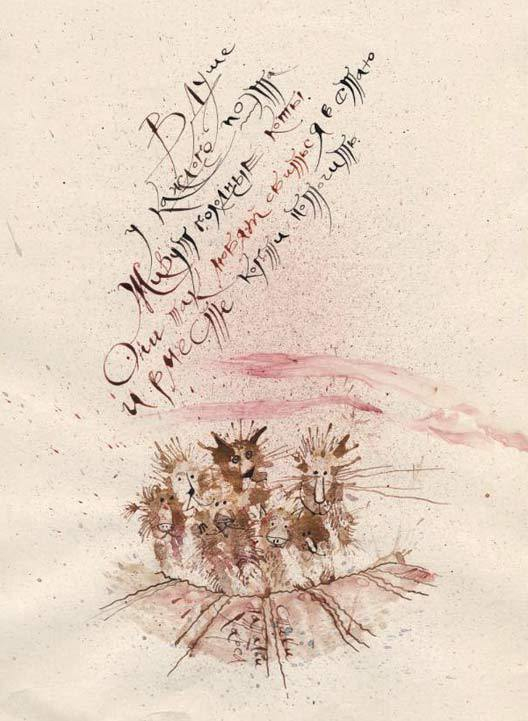 В Душе
у каждого поэта
Живут голодные коты.
Они так любят сбиться в стаю
и вместе когти поточить